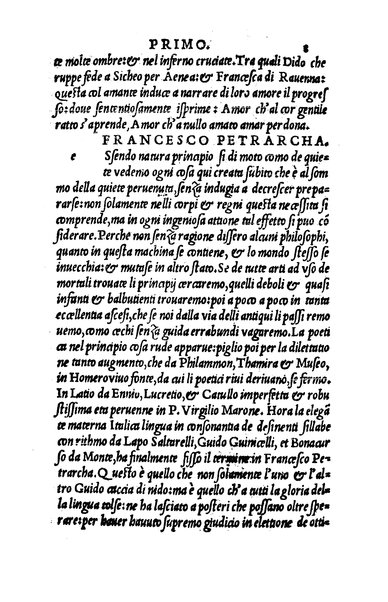 PRIMO. 8
te molte ombre: & nel inferno cruciate. Tra quali Dido che
ruppe fede a Sicheo per Aenea: & Francesca di Rauenna:
questa col amante induce a narrare di loro amore il progres
so: doue sententiosamente isprime: Amor ch'al cor gentile
ratto s'aprende, Amor ch'a nullo amato amar perdona.
FRANCESCO PETRARCHA.
e Ssendo natura principio si di moto come de quie-
te vedemo ogni cosa qui creata subito che è al som
mo della quiete peruenuta, senza indugia a decrescer prepa-
rarse: non solamente nelli corpi & regni questa necessita si
comprende, ma in ogni ingeniosa attione tal effetto si puo cō
siderare. Perche non senza ragione dissero alcuni philosophi,
quanto in questa machina se contiene, & lo mondo stesso se
inuecchia: & mutase in altro stato. Se de tutte arti ad vso de
mortali trouate li principij cercaremo, quelli deboli & quasi
infanti & balbutienti trouaremo: poi a poco a poco in tanta
eccellentia ascesi, che se noi dalla via delli antiqui li passi remo
uemo, como cechi senza guida errabundi vagaremo. La poeti
ca nel principio cosa rude apparue: piglio poi per la dilettatio
ne tanto augmento, che da Philammon, Thamira & Museo,
in Homero viuo fonte, da cui li poetici riui deriuano, se fermo.
In Latio da Ennio, Lucretio, & Catullo imperfetta & robu
stissima eta peruenne in P. Virgilio Marone. Hora la elegā
te materna Italica lingua in consonantia de desinenti sillabe
con rithmo da Lapo Saltarelli, Guido Guinicelli, et Bonacur
so da Monte, ha finalmente fisso il termine in Francesco Pe
trarcha. Questo è quello che non solamente l'uno & l'al
tro Guido caccia di nido: ma è quello ch'a tutti la gloria del
la lingua tolse: ne ha lasciato a posteri che possano oltre spe-
rare: per hauer hauuto supremo giudicio in elettione de otti-